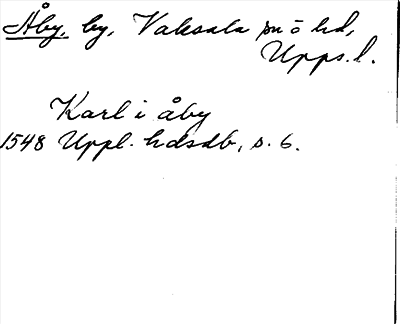 Åby, by, Vaksala sn o hd,
Upps. l.
Karl i åby
1548 Uppl. hdsdb, s. 6.